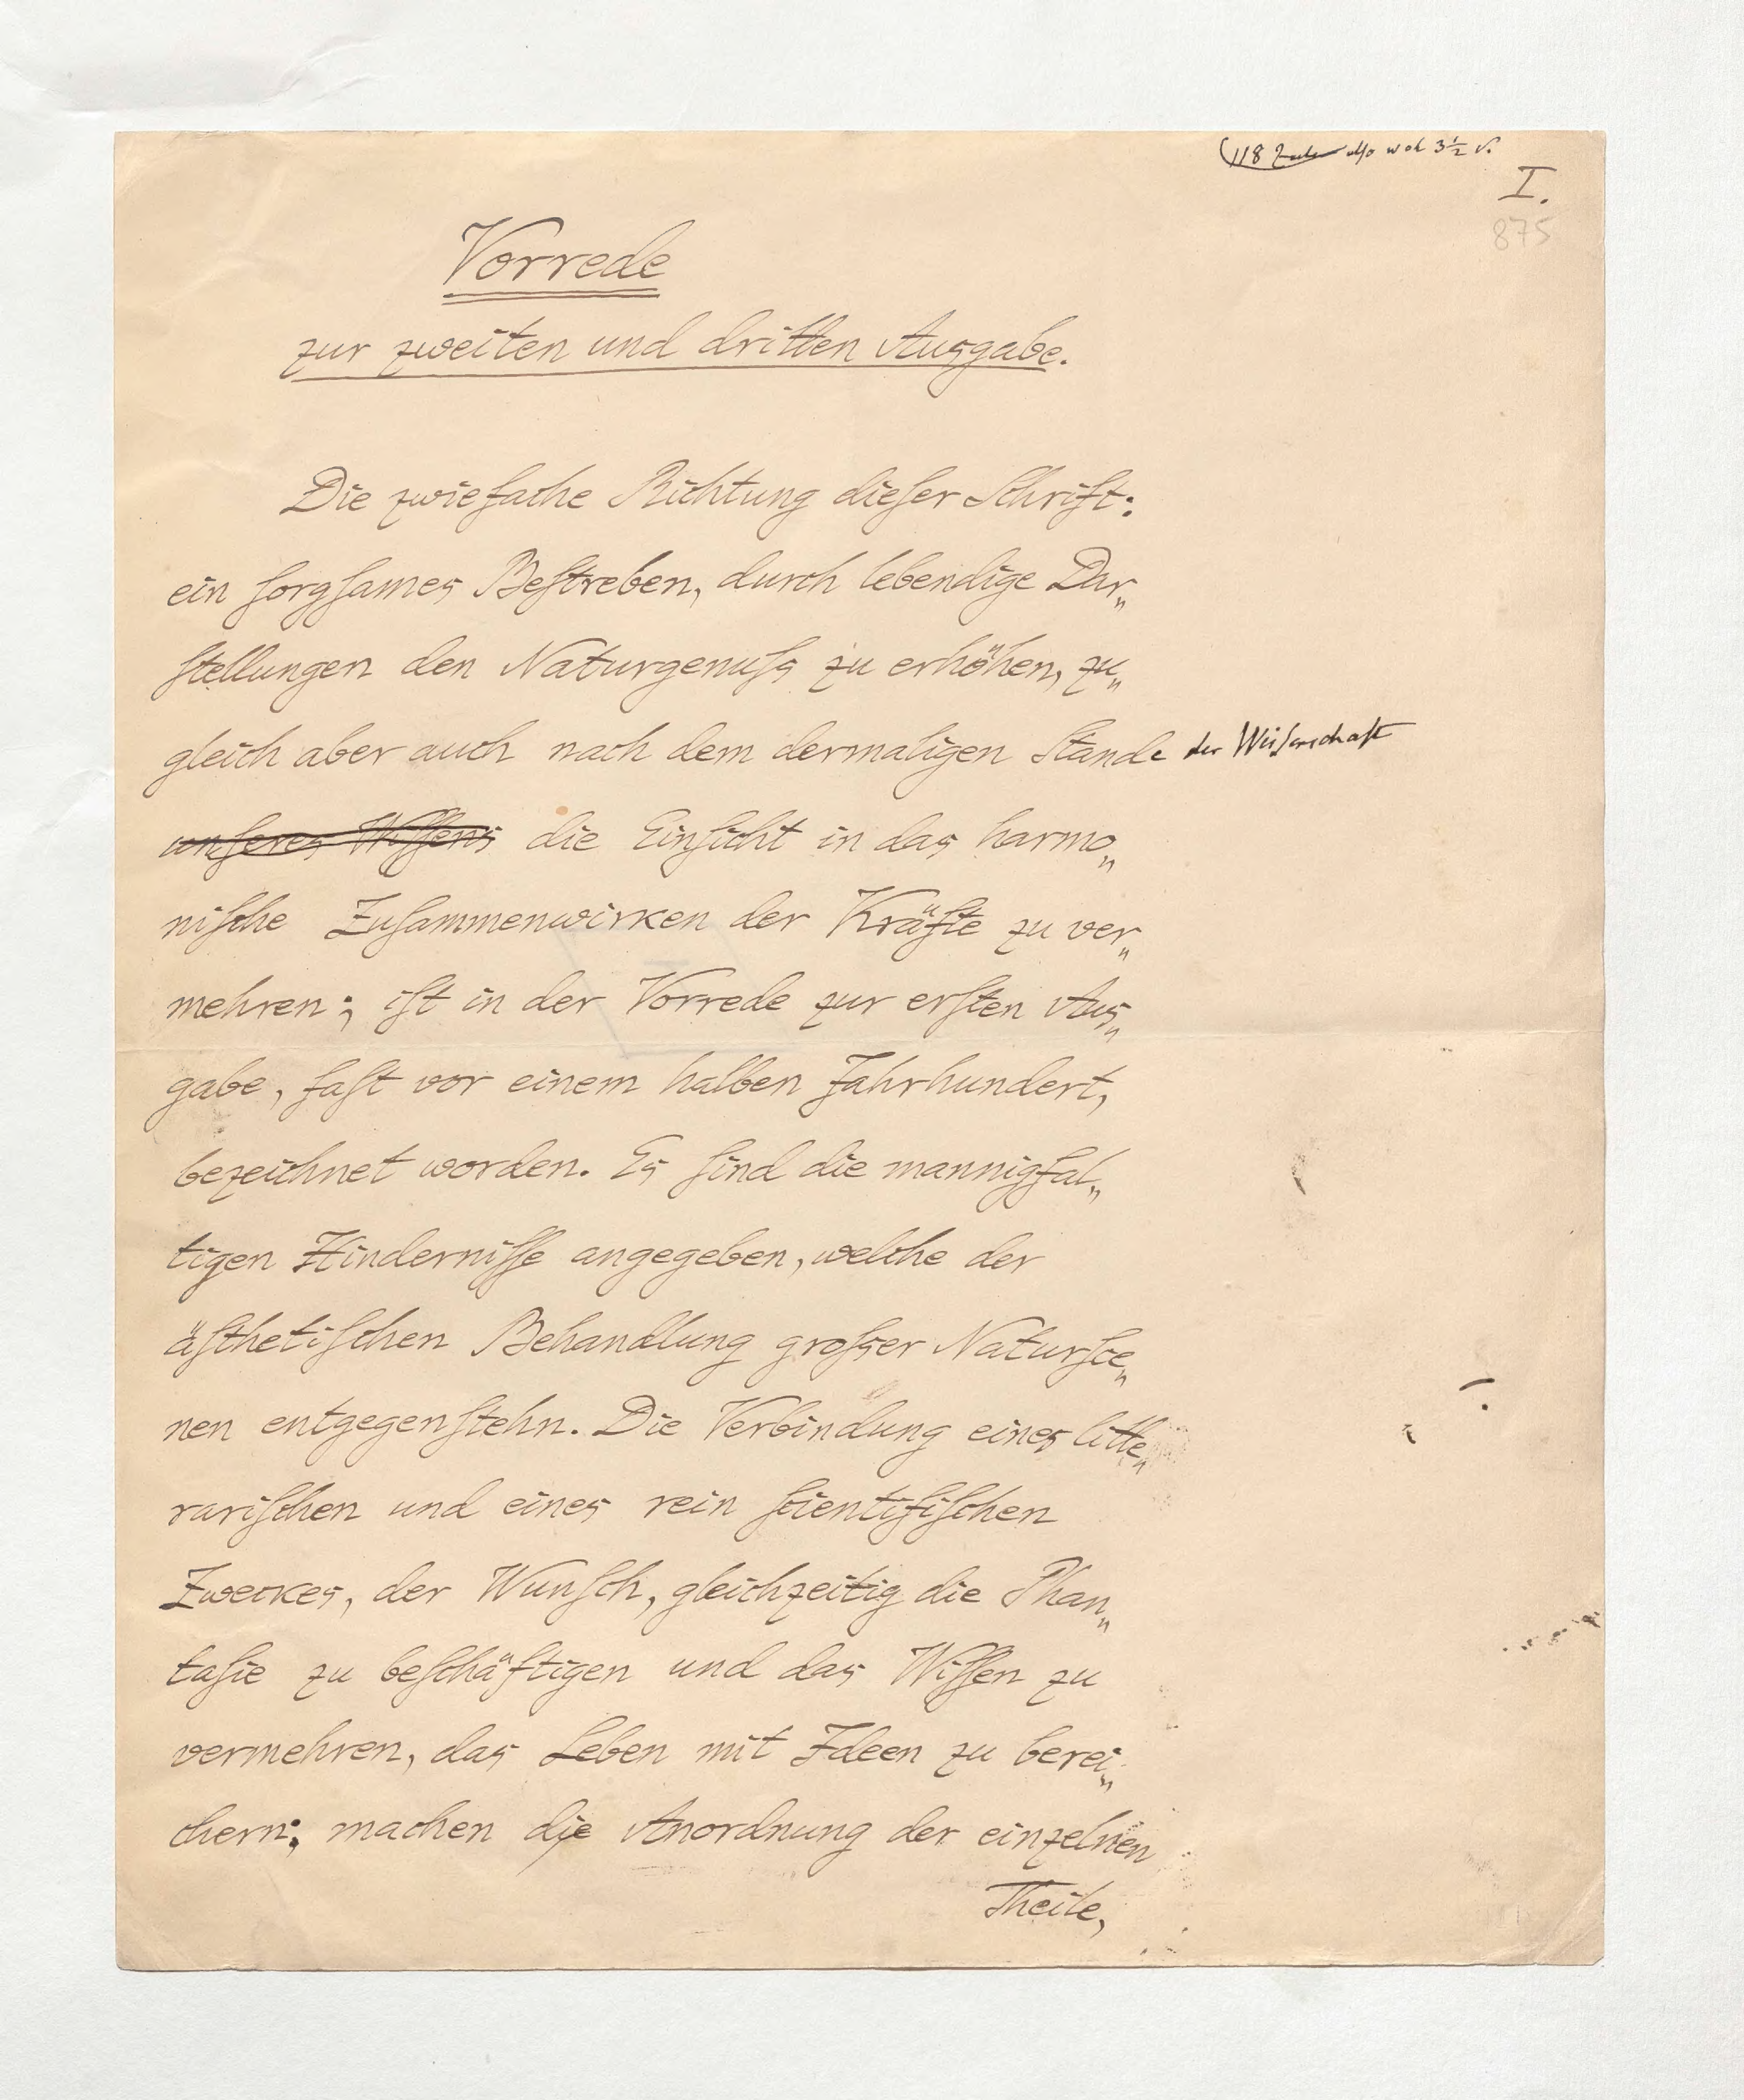 118 also woh 3½ S.
I.
875
Vorrede
zur zweiten und dritten Ausgabe.
Die zwiefache Richtung dieſer Schrift:
ein ſorgſames Beſtreben, durch lebendige Dar„
ſtellungen den Naturgenuſs zu erhöhen, zu„
gleich aber auch nach dem dermaligen Stande der Wiſsenschaft
unſeres Wiſſens die Einſicht in das harmo„
niſche Zuſammenwirken der Kräfte zu ver„
mehren; iſt in der Vorrede zur erſten Aus„
gabe, faſt vor einem halben Jahrhundert,
bezeichnet worden. Es ſind die mannigfal„
tigen Hinderniſſe angegeben, welche der
äſthetiſchen Behandlung groſser Naturſce„
nen entgegenſtehn. Die Verbindung eines litte„
rariſchen und eines rein ſcientifiſchen
Zweckes, der Wunſch, gleichzeitig die Phan„
taſie zu beſchäftigen und das Wiſſen zu
vermehren, das Leben mit Ideen zu berei„
chern; machen die Anordnung der einzelnen
Theile,